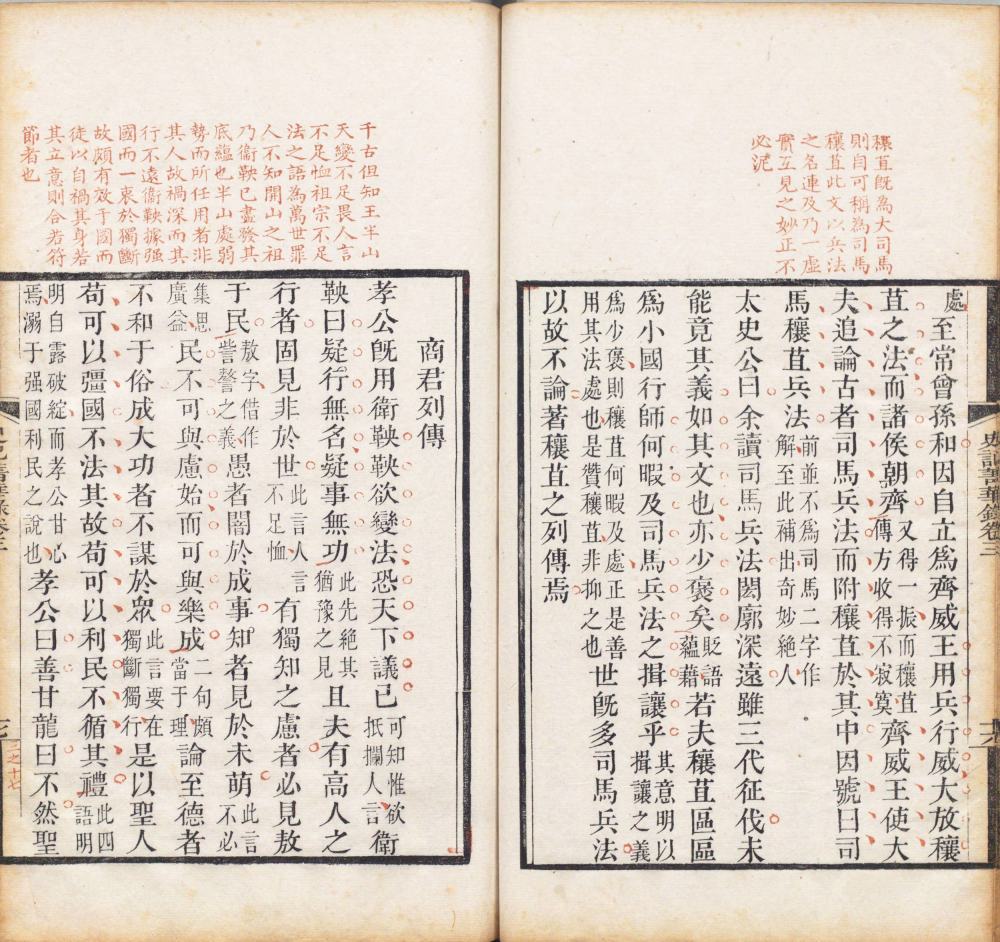 穰苴既為大司馬
則自可稱為司馬
穰苴此文以兵法
之名連及乃一虛
實互見之妙正不
必泥
處至常曾孫和因自立爲齊威王用兵行威大放穰
苴之法而諸侯朝齊又得一振而穰苴傳方收得不寂寞齊威王使大
夫追論古者司馬兵法而附穰苴於其中因號曰司
馬穰苴兵法前並不爲司馬二字作解至此補出奇妙絕人
太史公曰余讀司馬兵法閎廓深遠雖三代征伐未
能竟其義如其文也亦少褒矣貶語蘊藉若夫穰苴區區
爲小國行師何暇及司馬兵法之揖讓乎其意明以揖讓之義
爲少褒則穰苴何暇及處正是善用其法處也是贊穰苴非抑之也世既多司馬兵法
以故不論著穰苴之列傳焉
史記菁華錄卷三
十六
千古但知王半山
天變不足畏人言
不足恤祖宗不足
法之語為萬世罪
人不知開山之祖
乃衞鞅已盡發其
底蘊也半山處弱
勢而所任用者非
其人故禍深而其
行不遠衞鞅據强
國而一衷於獨斷
故頗有效于國而
徒以自禍其身若
其立意則合若符
節者也
商君列傳
孝公既用衞鞅鞅欲變法恐天下議己可知惟欲抵攔人言衞
鞅曰疑行無名疑事無功此先絕其猶豫之見且夫有高人之
行者固見非於世此言人言不足恤有獨知之慮者必見敖
于民敖字借作訾謷之義愚者闇於成事知者見於未萌此言不必
集思廣益民不可與慮始而可與樂成二句頗當于理論至德者
不和于俗成大功者不謀於眾此言要在獨斷獨行是以聖人
苟可以彊國不法其故苟可以利民不循其禮此四語明
明自露破綻而孝公甘心焉溺于强國利民之說也孝公曰善甘龍曰不然聖
三之十七